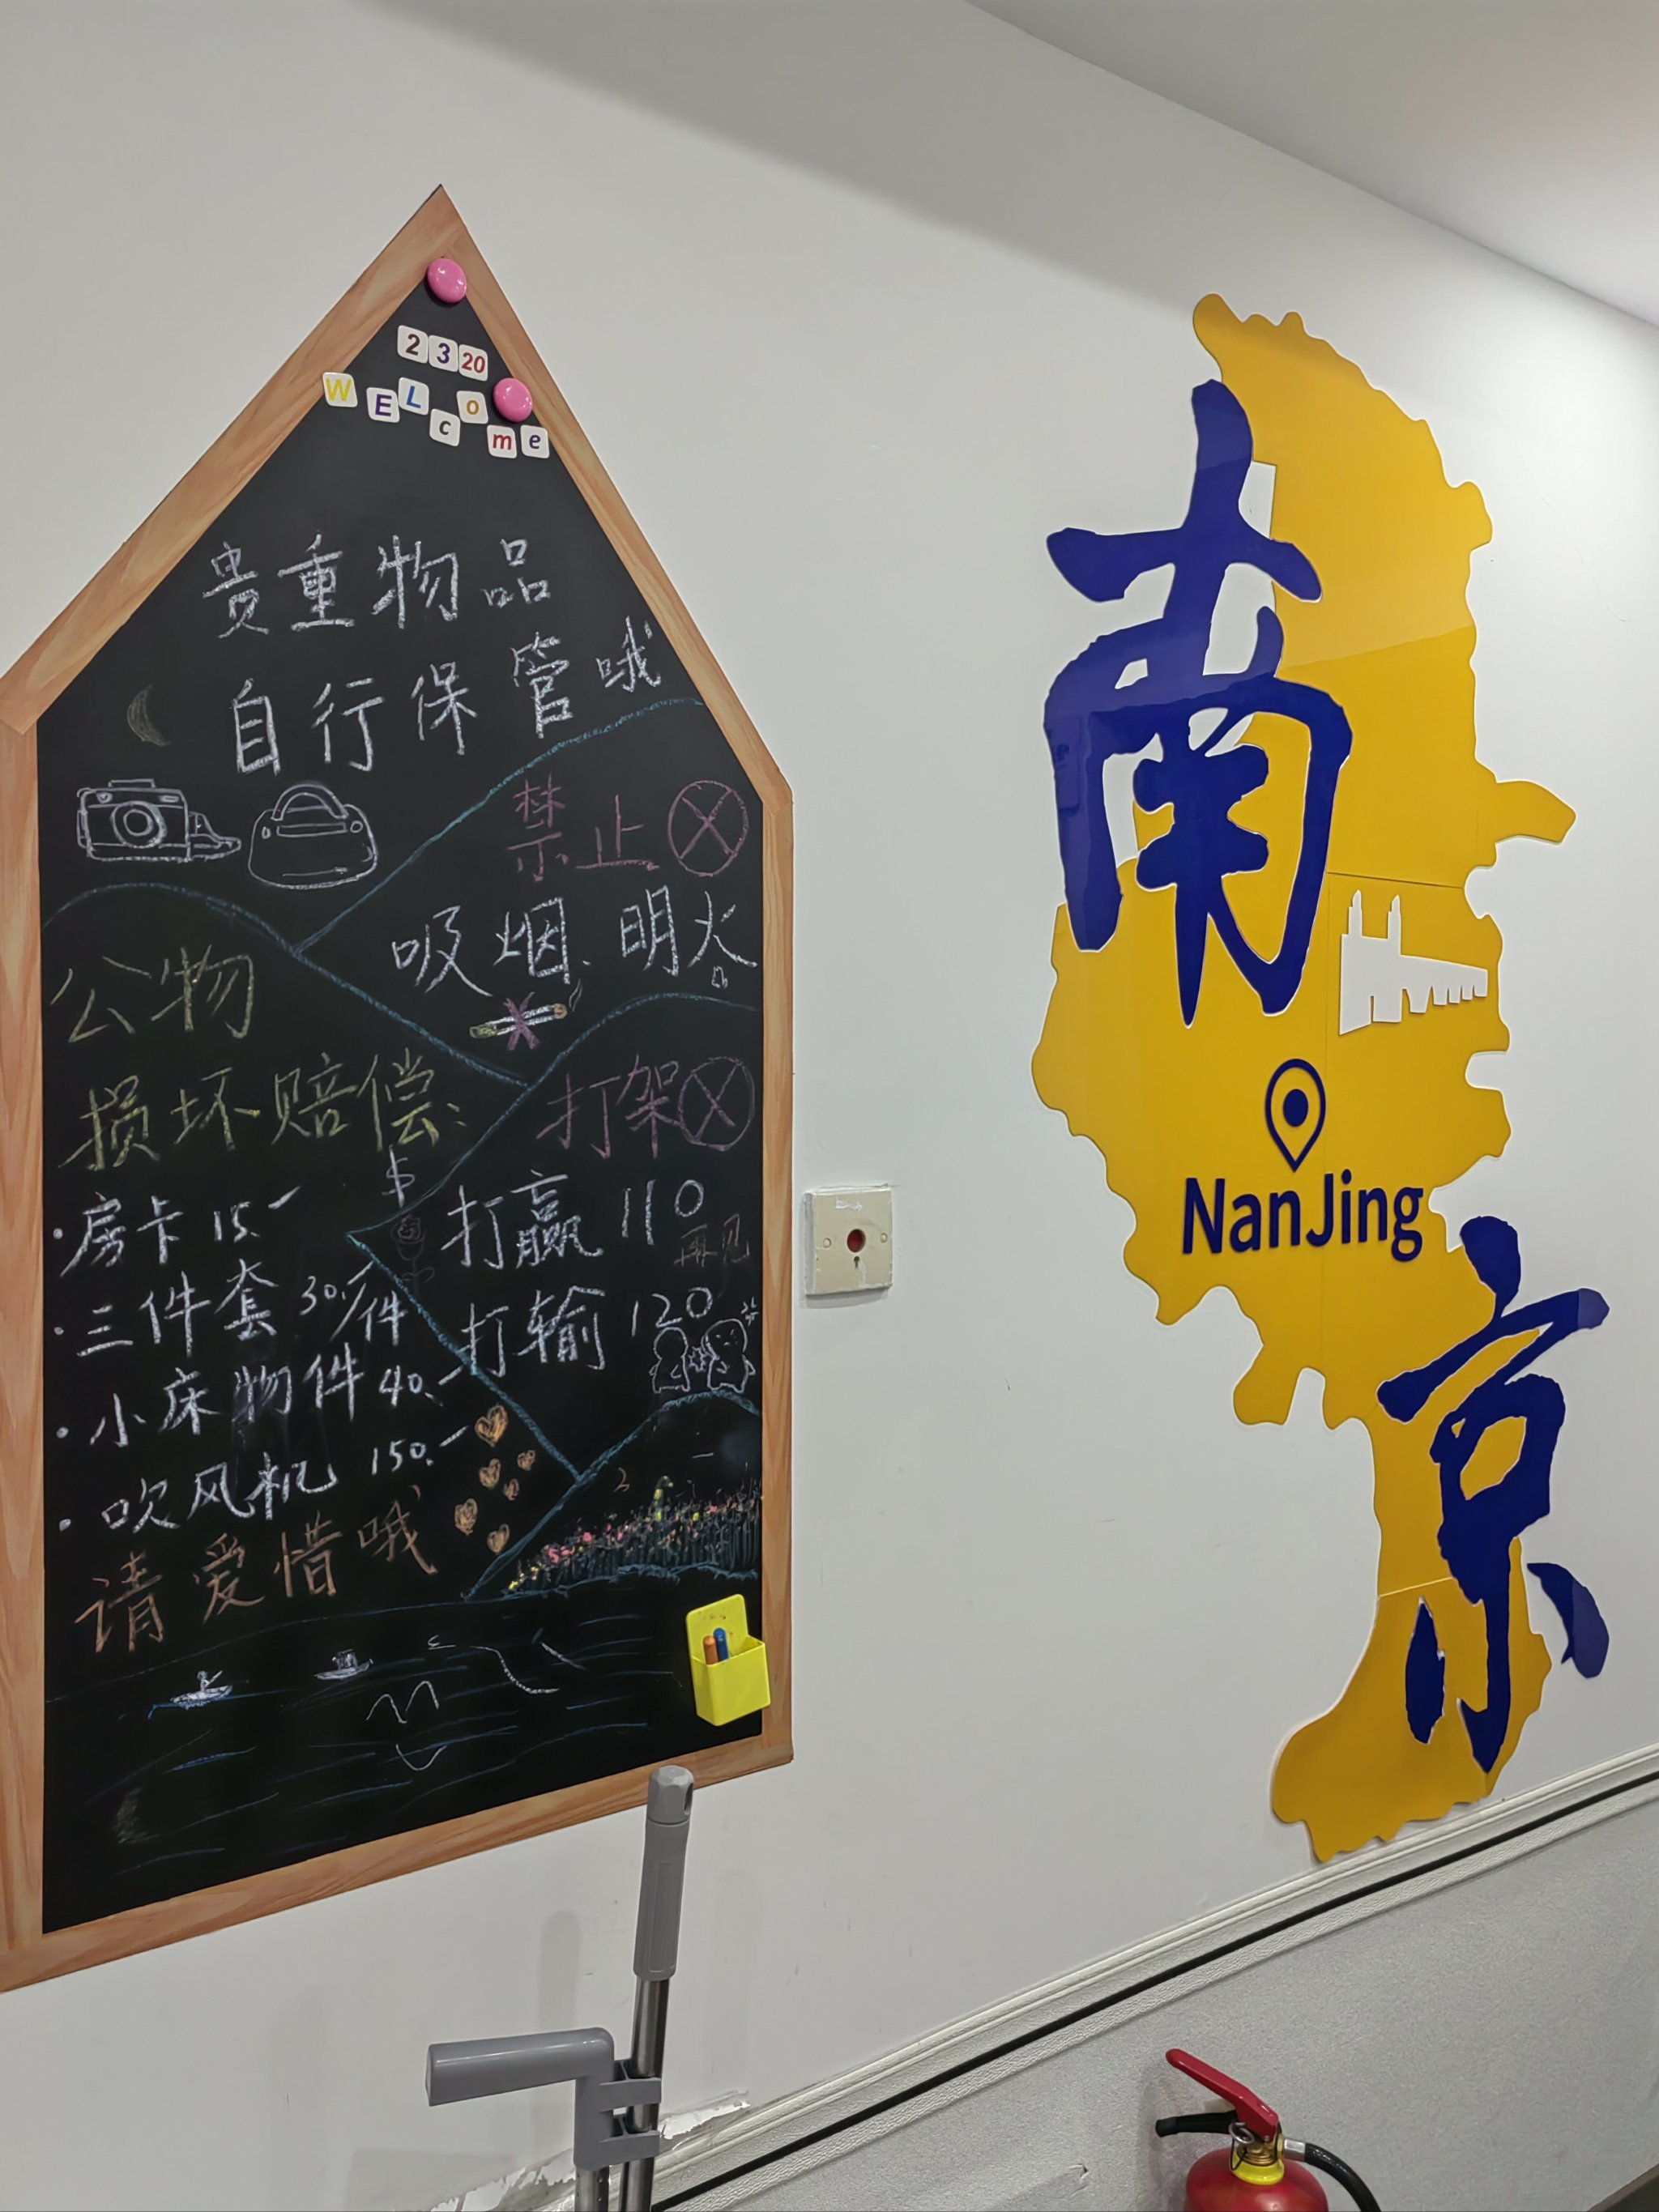 2320
WELcome
贵重物品
自行保管哦
禁止
吸烟、明火
公物
损坏赔偿:
$
·房卡 15.-
·三件套 30./件
·小床物件 40.-
·吹风机 150.-
请爱惜哦
打架
打赢 110
再见
打输 120
南
京
NanJing